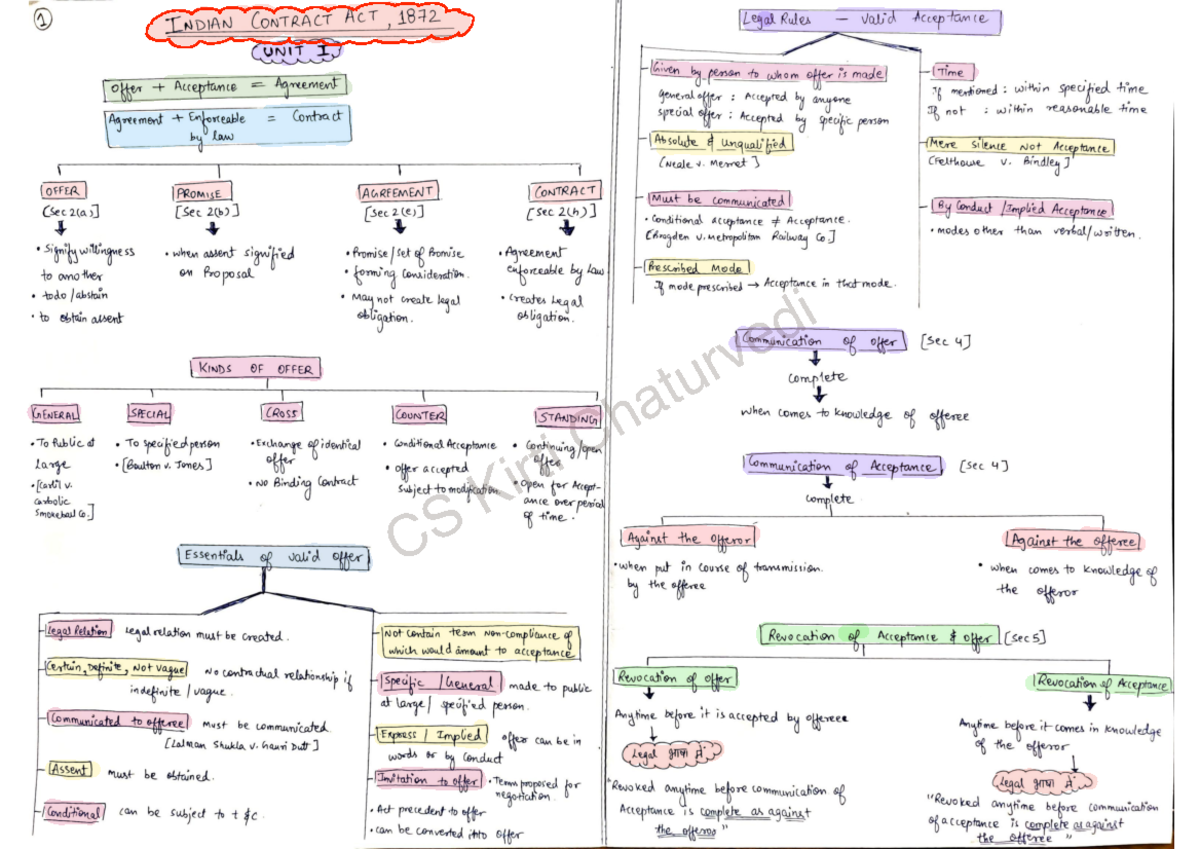 1
INDIAN CONTRACT ACT, 1872
UNIT I
Offer + Acceptance = Agreement
Agreement + Enforceable = Contract
by law
OFFER
[Sec 2(a)]
• Signify willingness
to another
• to do / abstain
• to obtain assent
PROMISE
[Sec 2(b)]
• when assent signified
on Proposal
AGREEMENT
[Sec 2(e)]
• Promise / Set of Promise
• forming consideration.
• May not create legal
obligation.
CONTRACT
[Sec 2(h)]
• Agreement
enforceable by law
• Creates Legal
obligation.
KINDS OF OFFER
GENERAL
• To Public at
Large
• [Carlil v.
Carbolic
Smokeball Co.]
SPECIAL
• To specified person
• [Boulton v. Jones]
CROSS
• Exchange of identical
offer
• No Binding Contract
COUNTER
• Conditional Acceptance
• offer accepted
subject to modification
STANDING
• Continuing / open
offer
• Open for Accept-
ance over period
of time.
Essentials of valid offer
Legal Relation Legal relation must be created.
Certain, Definite, Not vague No contractual relationship if
indefinite / vague.
Communicated to offeree must be communicated
[Lalman Shukla v. Gauri Dutt]
Assent must be obtained.
Conditional can be subject to t & c.
Not contain term non-compliance of
which would amount to acceptance
Specific / General made to public
at large / specified person.
Express / Implied offer can be in
words or by conduct
Invitation to offer • Term proposed for
negotiation.
• Act precedent to offer
• can be converted into offer
Legal Rules — valid Acceptance
Given by person to whom offer is made
general offer : Accepted by anyone
special offer : Accepted by specific person
Absolute & Unqualified
[Neale v. Merret]
Must be communicated
• Conditional acceptance ≠ Acceptance.
[Brogden v. Metropolitan Railway Co.]
Prescribed Mode
If mode prescribed → Acceptance in that mode.
Time
If mentioned : within specified time
If not : within reasonable time
Mere silence Not Acceptance
[Felthouse v. Bindley]
By Conduct / Implied Acceptance
• modes other than verbal / written.
Communication of offer [Sec 4]
complete
when comes to knowledge of offeree
Communication of Acceptance [Sec 4]
complete
Against the Offeror
• when put in course of transmission.
by the offeree
Against the offeree
• when comes to knowledge of
the offeror
Revocation of Acceptance & offer [Sec 5]
Revocation of offer
Anytime before it is accepted by offeree
Legal भाषा में
"Revoked anytime before communication of
Acceptance is complete as against
the offeror"
Revocation of Acceptance
Anytime before it comes in knowledge
of the offeror
Legal भाषा में
"Revoked anytime before communication
of acceptance is complete as against
the offeree"
CS Kirti Chaturvedi